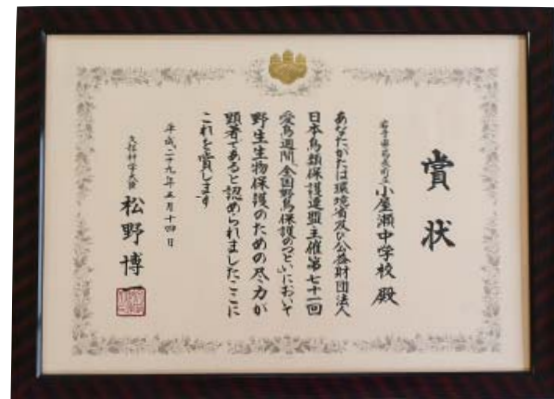 賞状
岩手県葛巻町立小屋瀬中学校 殿
あなたがたは環境省及び公益財団法人
日本鳥類保護連盟主催第七十一回
愛鳥週間全国野鳥保護のつどいにおいて
野生生物保護のための尽力が
顕著であると認められましたここに
これを賞します
平成二十九年五月十四日
文部科学大臣 松野博一